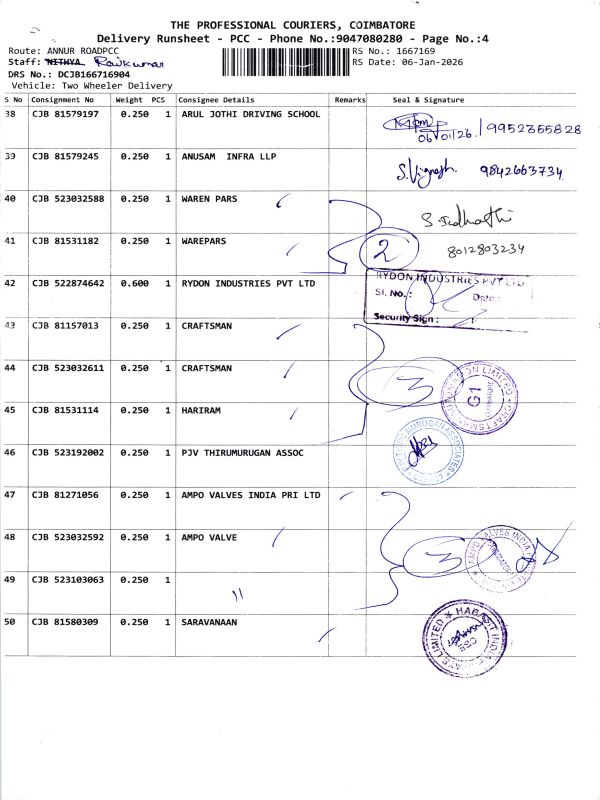 THE PROFESSIONAL COURIERS, COIMBATORE
Delivery Runsheet - PCC - Phone No.:9047080280 - Page No.:4
Route: ANNUR ROADPCC RS No.: 1667169
Staff: NITHYA Rajkumar RS Date: 06-Jan-2026
DRS No.: DCJB166716904
Vehicle: Two Wheeler Delivery
S No Consignment No Weight PCS Consignee Details Remarks Seal & Signature
38 CJB 81579197 0.250 1 ARUL JOTHI DRIVING SCHOOL
06/01/26 / 9952365828
39 CJB 81579245 0.250 1 ANUSAM INFRA LLP S.Vignesh. 9842663734
40 CJB 523032588 0.250 1 WAREN PARS
41 CJB 81531182 0.250 1 WAREPARS 2 8012803234
42 CJB 522874642 0.600 1 RYDON INDUSTRIES PVT LTD RYDON INDUSTRIES PVT LTD
Sl. No.: Date:
Security Sign:
43 CJB 81157013 0.250 1 CRAFTSMAN
44 CJB 523032611 0.250 1 CRAFTSMAN 3 CRAFTSMAN AUTOMATION LIMITED G1
45 CJB 81531114 0.250 1 HARIRAM
46 CJB 523192002 0.250 1 PJV THIRUMURUGAN ASSOC
47 CJB 81271056 0.250 1 AMPO VALVES INDIA PRI LTD
48 CJB 523032592 0.250 1 AMPO VALVE 3 AMPO VALVES INDIA
49 CJB 523103063 0.250 1
50 CJB 81580309 0.250 1 SARAVANAAN